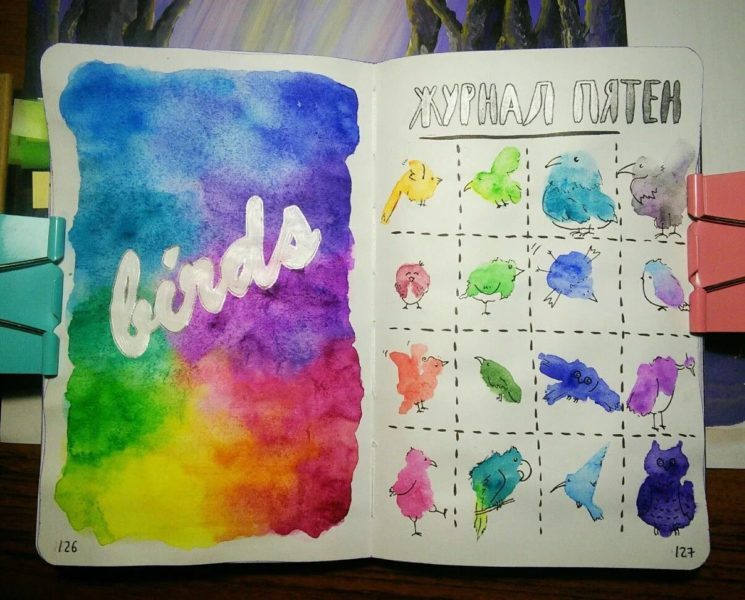 birds
126
ЖУРНАЛ ПЯТЕН
127